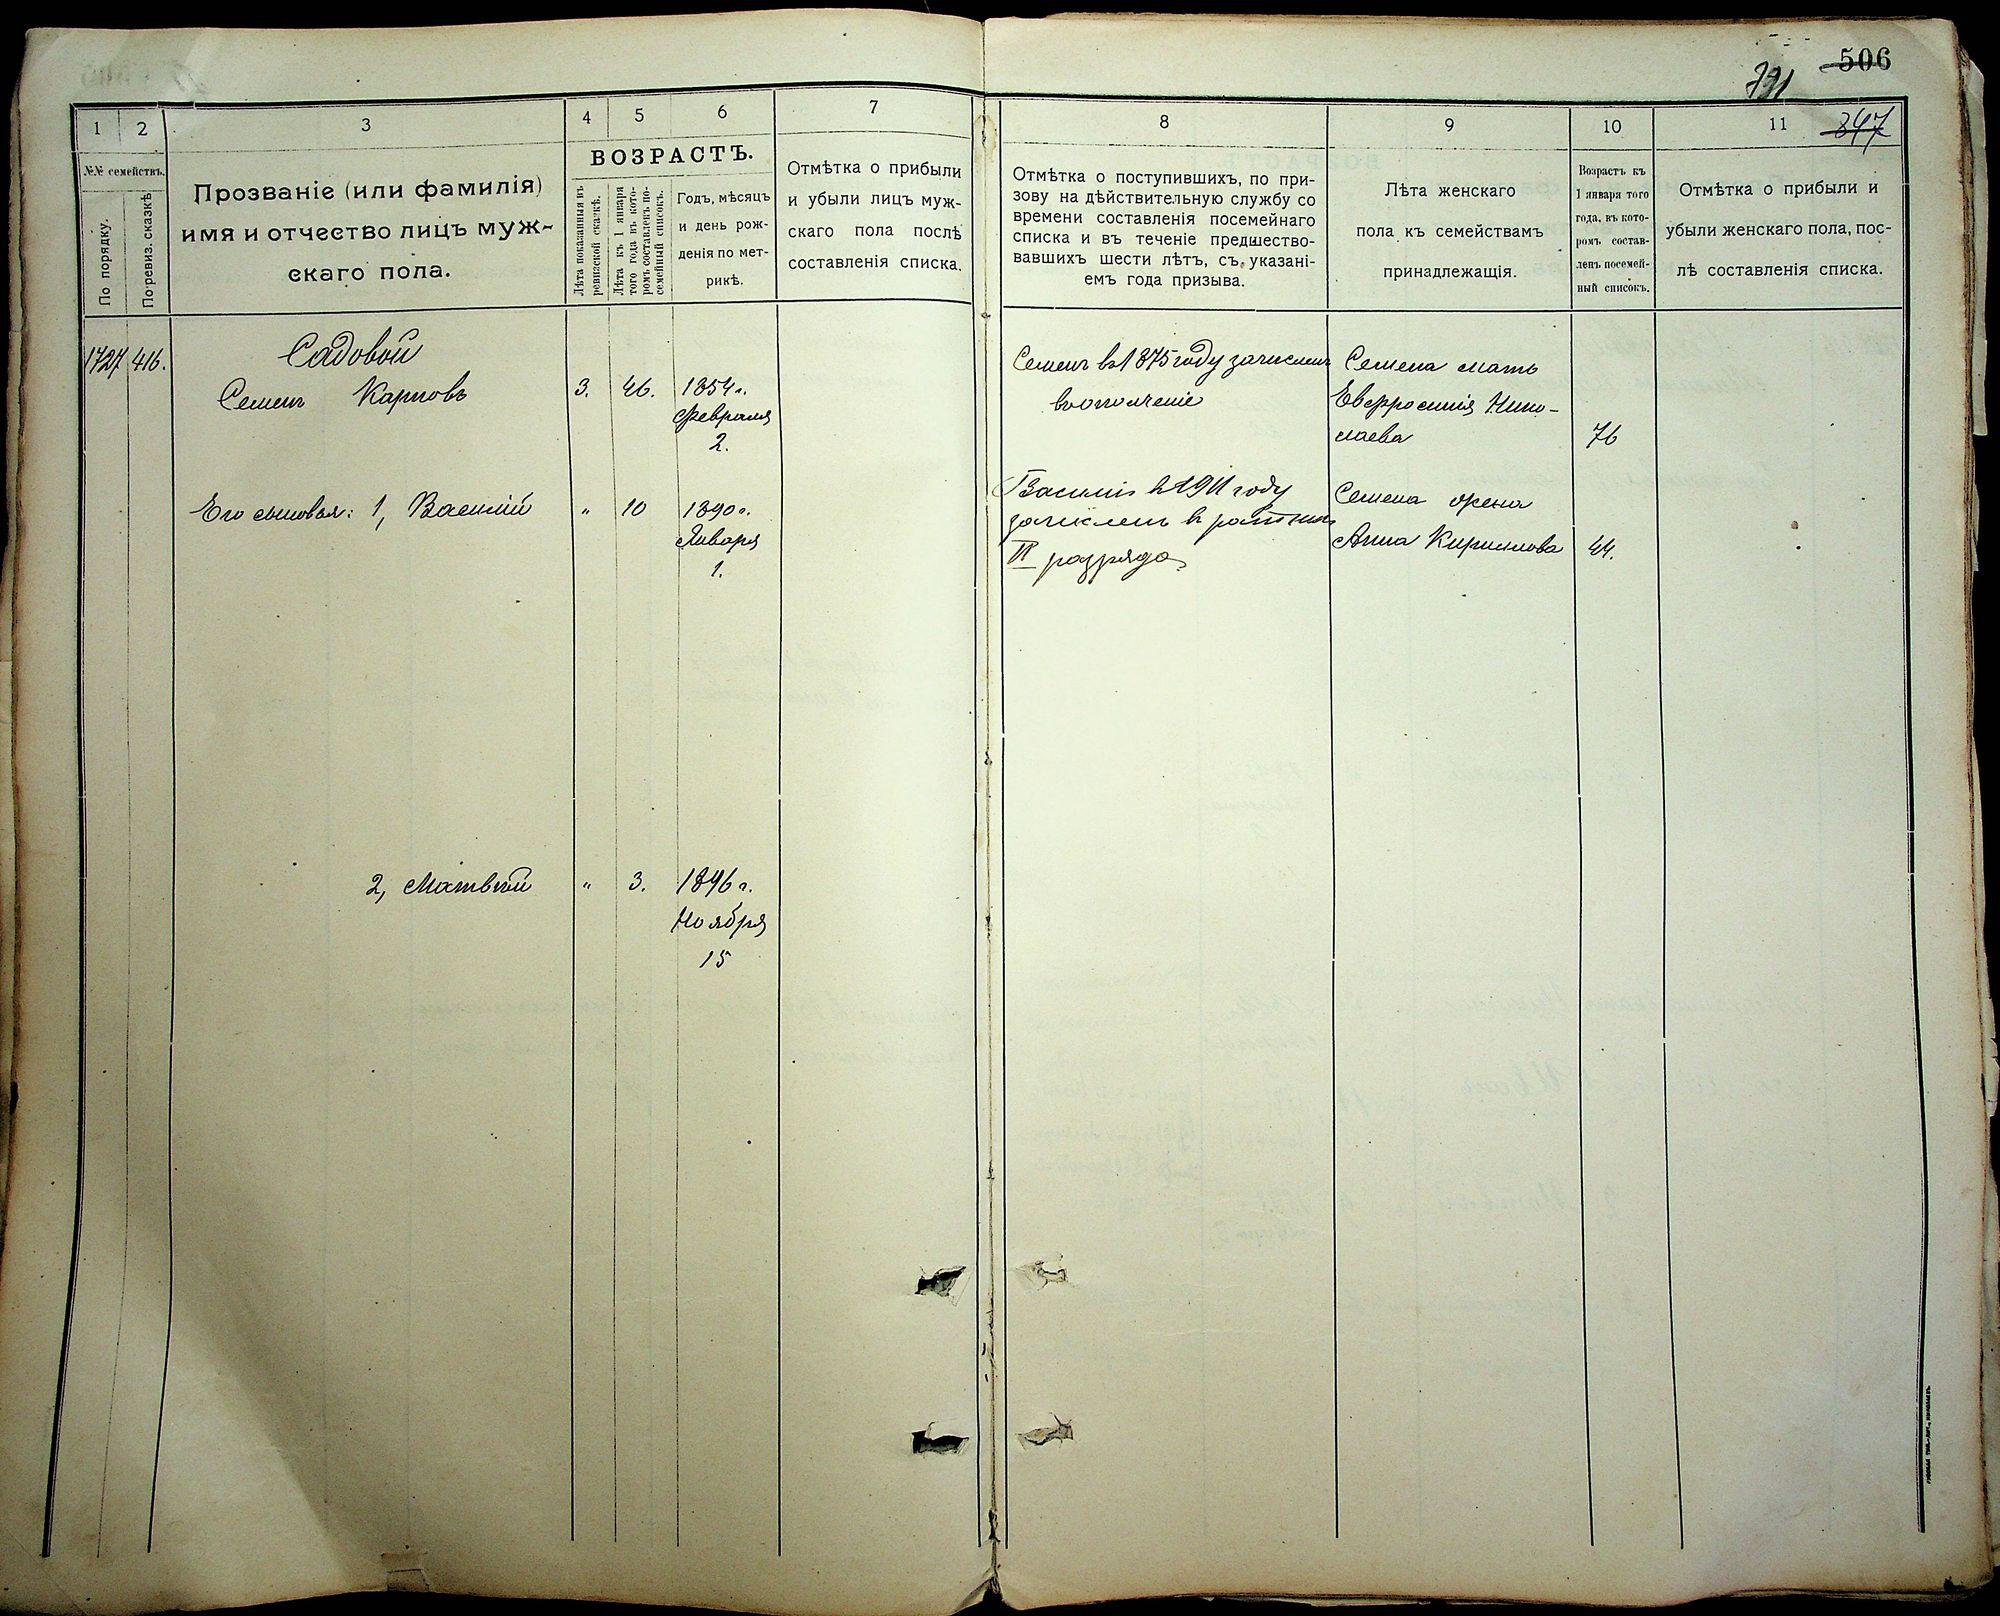 506
791
847
1
2
3
4
5
6
7
8
9
10
11
№№ семействъ.
По порядку.
По ревиз. сказкѣ
Прозваніе (или фамилія)
имя и отчество лицъ муж-
скаго пола.
ВОЗРАСТЪ.
Лѣта показанныя въ
ревизской сказкѣ.
Лѣта къ 1 января
того года въ кото-
ромъ составленъ по-
семейный списокъ.
Годъ, мѣсяцъ
и день рож-
денія по мет-
рикѣ.
Отмѣтка о прибыли
и убыли лицъ муж-
скаго пола послѣ
составленія списка.
Отмѣтка о поступившихъ, по при-
зову на дѣйствительную службу со
времени составленія посемейнаго
списка и въ теченіе предшество-
вавшихъ шести лѣтъ, съ указані-
емъ года призыва.
Лѣта женскаго
пола къ семействамъ
принадлежащія.
Возрастъ къ
1 января того
года, въ кото-
ромъ состав-
ленъ посемей-
ный списокъ.
Отмѣтка о прибыли и
убыли женскаго пола, пос-
лѣ составленія списка.
1727 416.
Садовой
Семенъ Карповъ 3. 46. 1854 г.
Февраля
2.
Его сыновья: 1, Василій " 10 1890 г.
Января
1.
2, Матвѣй " 3. 1896 г.
Ноября
15
Семенъ въ 1875 году зачисленъ
въ ополченіе
Василій въ 1911 году
зачисленъ в ратники
II разряда
Семена мать
Евфросинія Нико-
лаева 76
Семена жена
Анна Кириллова 44.